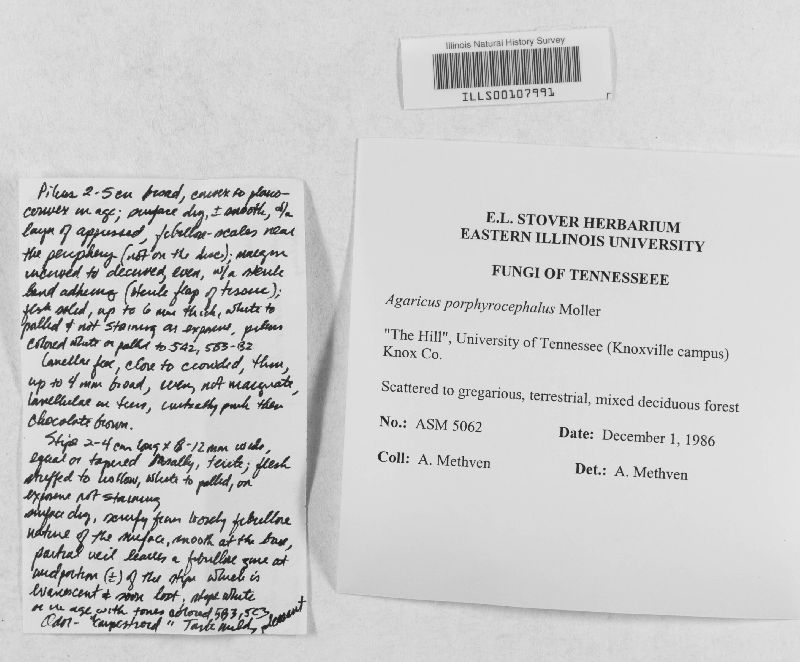 Illinois Natural History Survey
ILLS00107991
E.L. STOVER HERBARIUM
EASTERN ILLINOIS UNIVERSITY
FUNGI OF TENNESEEE
Agaricus porphyrocephalus Moller
"The Hill", University of Tennessee (Knoxville campus)
Knox Co.
Scattered to gregarious, terrestrial, mixed deciduous forest
No.: ASM 5062 Date: December 1, 1986
Coll: A. Methven Det.: A. Methven
Pileus 2-5 cm broad, convex to plano-
convex in age; surface dry, ± smooth, w/a
layer of appressed, fibrillose-scales near
the periphery (not on the disc); margin
incurved to decurved, even, w/a sterile
band adhering (sterile flap of tissue);
flesh solid, up to 6 mm thick, white to
pallid & not staining on exposure, pileus
colored white or pallid to 5A2, 5B3-B2
Lamellae free, close to crowded, thin,
up to 4 mm broad, even, not marginate,
lamellulae in tiers, initially pink then
chocolate brown.
Stipe 2-4 cm long x 8-12 mm wide,
equal or tapered basally, terete; flesh
stuffed to hollow, white to pallid, on
exposure not staining
surface dry, scurfy from loosely fibrillose
nature of the surface, smooth at the base,
partial veil leaves a fibrillose zone at
midportion (±) of the stipe which is
evanescent & soon lost; stipe white
or in age with tones colored 5B3, 5C3
Odor - "campestroid" Taste mild, pleasant